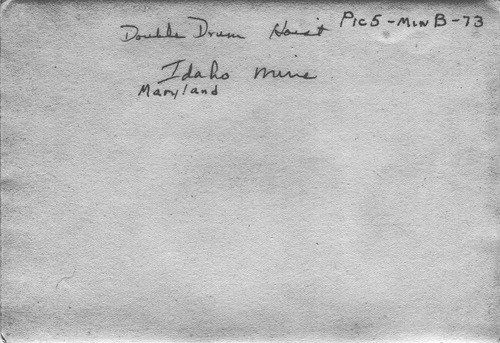 Pic5-MinB-73
Double Drum Hoist
Idaho Mine
Maryland